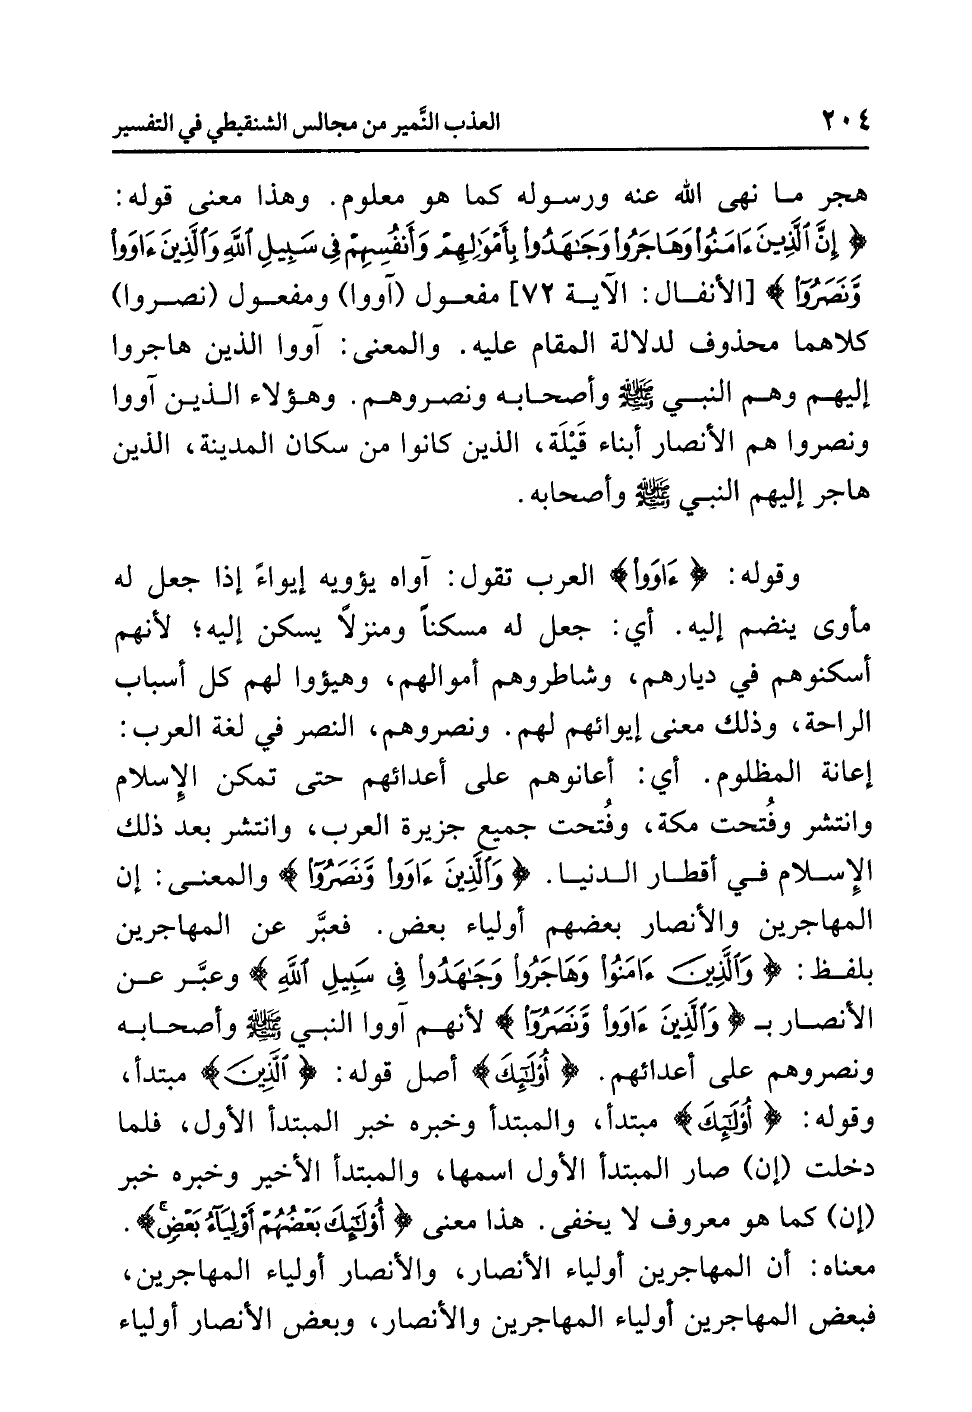 ٢٠٤ العذب النَّمير من مجالس الشنقيطي في التفسير
هجر ما نهى الله عنه ورسوله كما هو معلوم. وهذا معنى قوله:
﴿إِنَّ ٱلَّذِينَ ءَامَنُوا۟ وَهَاجَرُوا۟ وَجَٰهَدُوا۟ بِأَمْوَٰلِهِمْ وَأَنفُسِهِمْ فِى سَبِيلِ ٱللَّهِ وَٱلَّذِينَ ءَاوَوا۟
وَّنَصَرُوٓا۟﴾ [الأنفال: الآية ٧٢] مفعول (آووا) ومفعول (نصروا)
كلاهما محذوف لدلالة المقام عليه. والمعنى: آووا الذين هاجروا
إليهم وهم النبي ﷺ وأصحابه ونصروهم. وهؤلاء الذين آووا
ونصروا هم الأنصار أبناء قَيْلَة، الذين كانوا من سكان المدينة، الذين
هاجر إليهم النبي ﷺ وأصحابه.
وقوله: ﴿ءَاوَوا۟﴾ العرب تقول: آواه يؤويه إيواءً إذا جعل له
مأوى ينضم إليه. أي: جعل له مسكناً ومنزلاً يسكن إليه؛ لأنهم
أسكنوهم في ديارهم، وشاطروهم أموالهم، وهيؤوا لهم كل أسباب
الراحة، وذلك معنى إيوائهم لهم. ونصروهم، النصر في لغة العرب:
إعانة المظلوم. أي: أعانوهم على أعدائهم حتى تمكن الإسلام
وانتشر وفُتحت مكة، وفُتحت جميع جزيرة العرب، وانتشر بعد ذلك
الإسلام في أقطار الدنيا. ﴿وَٱلَّذِينَ ءَاوَوا۟ وَّنَصَرُوٓا۟﴾ والمعنى: إن
المهاجرين والأنصار بعضهم أولياء بعض. فعبَّر عن المهاجرين
بلفظ: ﴿وَٱلَّذِينَ ءَامَنُوا۟ وَهَاجَرُوا۟ وَجَٰهَدُوا۟ فِى سَبِيلِ ٱللَّهِ﴾ وعبَّر عن
الأنصار بـ ﴿وَٱلَّذِينَ ءَاوَوا۟ وَّنَصَرُوٓا۟﴾ لأنهم آووا النبي ﷺ وأصحابه
ونصروهم على أعدائهم. ﴿أُو۟لَٰٓئِكَ﴾ أصل قوله: ﴿ٱلَّذِينَ﴾ مبتدأ،
وقوله: ﴿أُو۟لَٰٓئِكَ﴾ مبتدأ، والمبتدأ وخبره خبر المبتدأ الأول، فلما
دخلت (إن) صار المبتدأ الأول اسمها، والمبتدأ الأخير وخبره خبر
(إن) كما هو معروف لا يخفى. هذا معنى ﴿أُو۟لَٰٓئِكَ بَعْضُهُمْ أَوْلِيَآءُ بَعْضٍۚ﴾.
معناه: أن المهاجرين أولياء الأنصار، والأنصار أولياء المهاجرين،
فبعض المهاجرين أولياء المهاجرين والأنصار، وبعض الأنصار أولياء